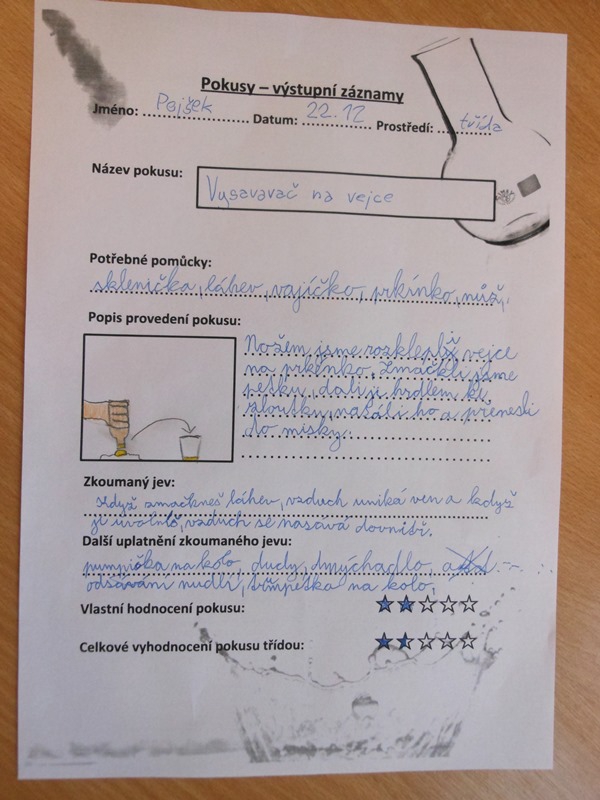 Pokusy – výstupní záznamy
Jméno: Pajšek Datum: 22.12 Prostředí: třída
Název pokusu: Vysavavač na vejce
Potřebné pomůcky:
sklenička, láhev, vajíčko, prkínko, nůž,
Popis provedení pokusu:
Nožem jsme rozklepli vejce
na prkénko. Zmáčkli jsme
petku, dali je hrdlem ke
žloutku, nasáli ho a přenesli
do misky.
Zkoumaný jev:
Když zmačkneš láhev, vzduch uniká ven a když
ji uvolníš, vzduch se nasává dovnitř.
Další uplatnění zkoumaného jevu:
pumpička na kolo, dudy, dmýchadlo,
odsávání nudlí, trumpetka na kolo,
Vlastní hodnocení pokusu:
Celkové vyhodnocení pokusu třídou: